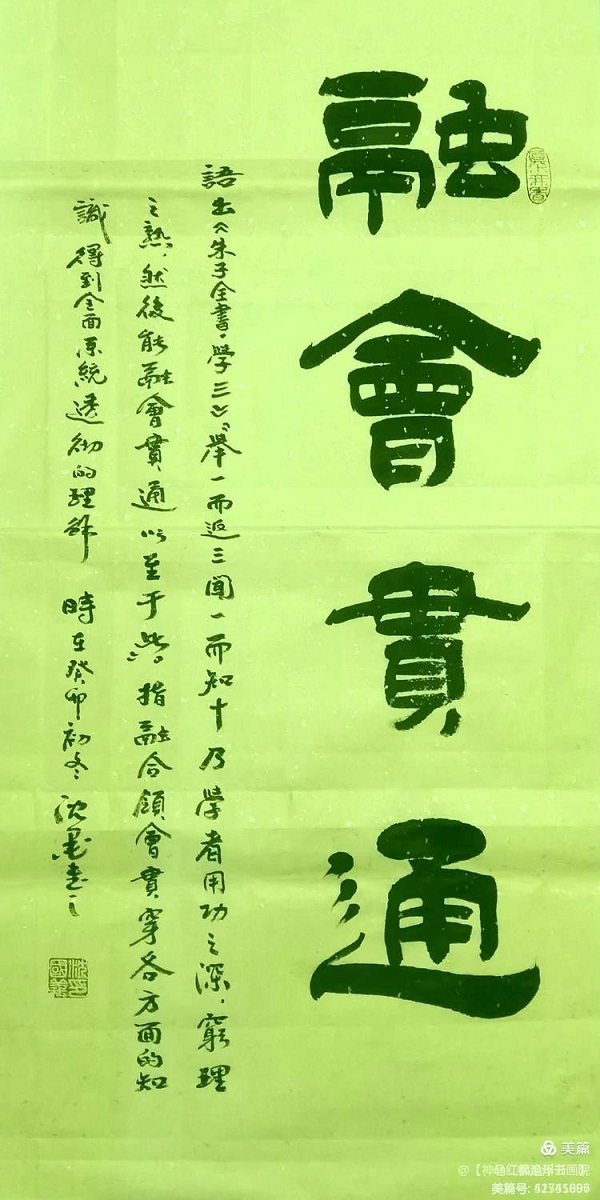 融會貫通
語出《朱子全書·學三》“舉一而返三聞一而知十乃學者用功之深,窮理
之熟,然後能融會貫通以至于此”。指融合領會貫穿各方面的知
識得到全面系統透彻的理解 時在癸卯初冬 沈墨書之
美篇